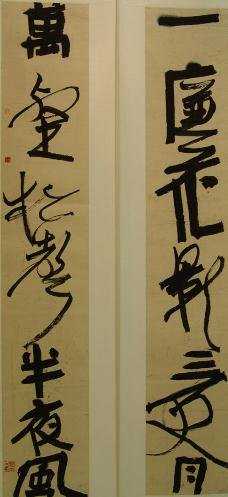 一庭花影三更月
萬壑松聲半夜風